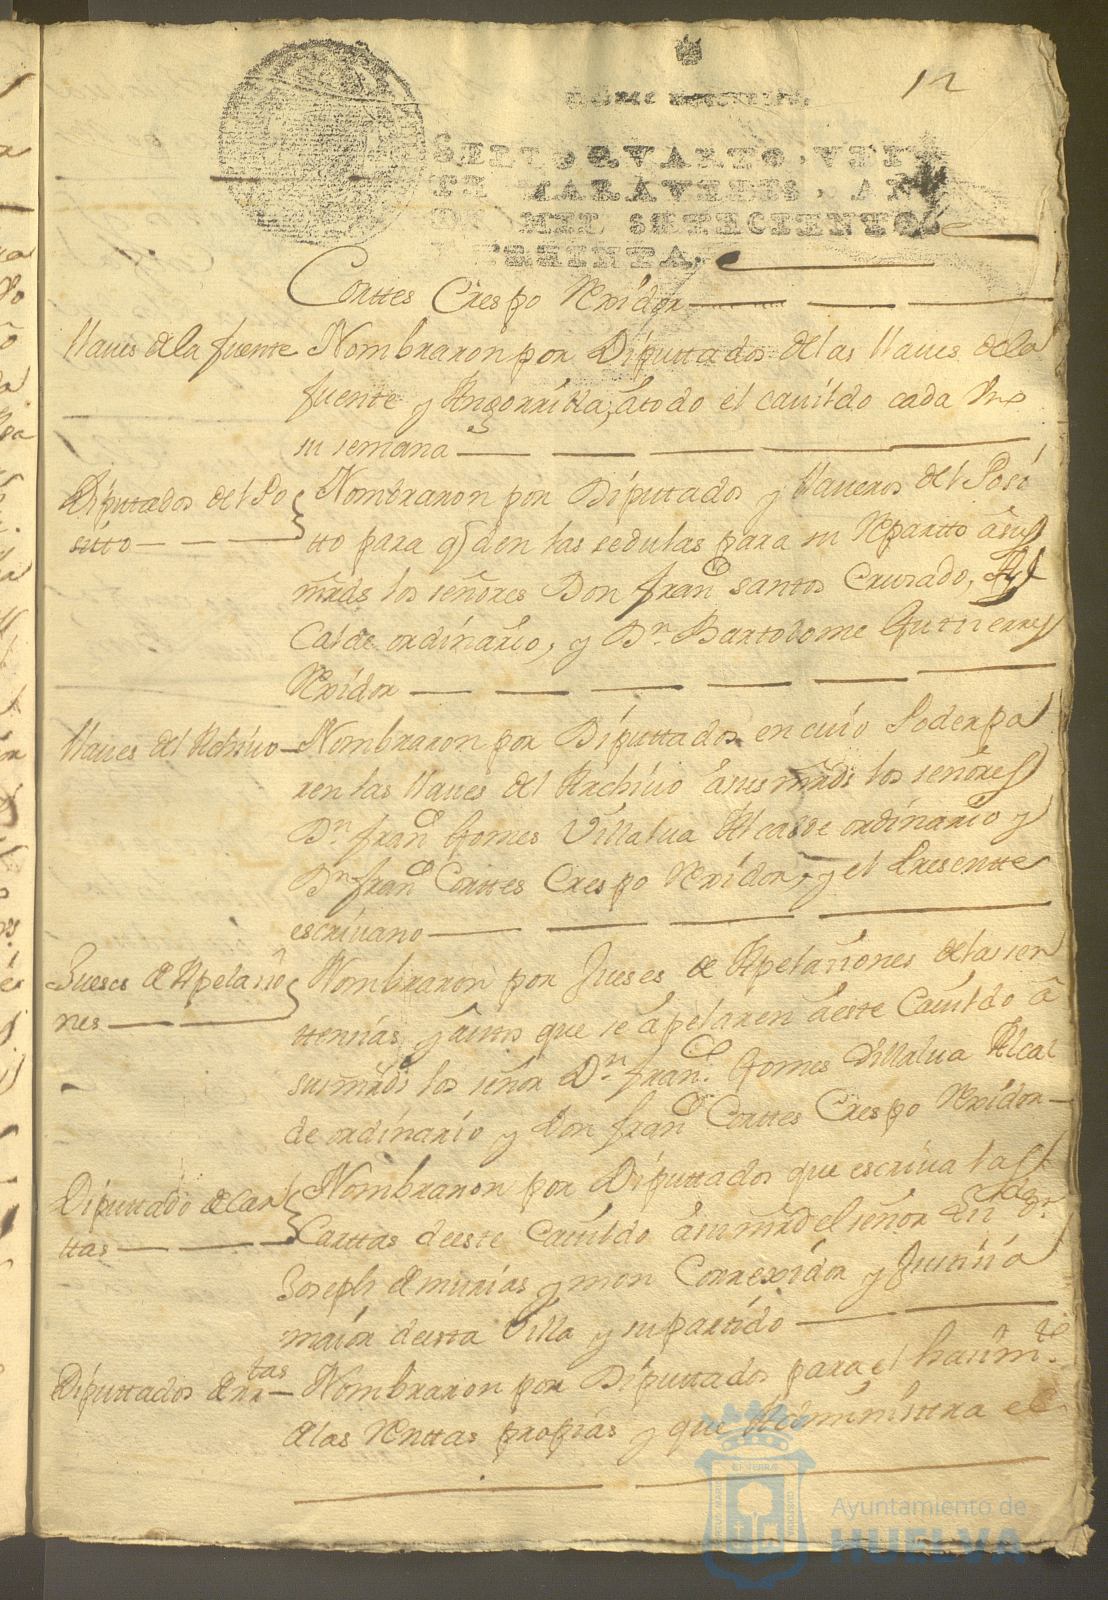 12
SELLO QVARTO, VEIN
TE MARAVEDIS, AÑO
DE MIL SETECIENTOS
Y TREINTA.
Corttes Crespo Rexidor
llaues de la fuente Nombraron por Diputtados de las llaues de la
fuente y Angorrilla, a todo el cauildo cada Vno
su semana
Diputtados del Po Nombraron por Diputtados y llaueros del Posi
sitto tto para q den las sedulas para su Repartto a sus
mrds los señores Don franco santos Cruzado, Al
calde ordinario, y Dn Bartolome Gutierres
Rexidor
llaues del Achiuo Nombraron por Diputtados en cuio Poder pa
ren las llaues del Archiuo a sus mrds los señores
Dn franco Gomes Villalua Alcalde ordinario y
Dn franco Corttes Crespo Rexidor, y el Presentte
escriuano
Jueses de Apelasio Nombraron por Jueses de Apelasiones de las sen
nes ttensias y autos que se apelaren a este Cauildo a
sus mrds los señor Dn franco Gomes Villalua Alcal
de ordinario y Don franco Corttes Crespo Rexidor
Diputtado de Car Nombraron por Diputtados que escriua las
ttas Carttas de este Cauildo a su mrd el señor Lizdo Dn
Joseph de murias y mon Correxidor y Justisia
maior de esta Villa y su partido
Diputtados de Rttas Nombraron por Diputtados para el hasimto
de las Renttas propias y que Administtra el
Ayuntamiento de
HUELVA